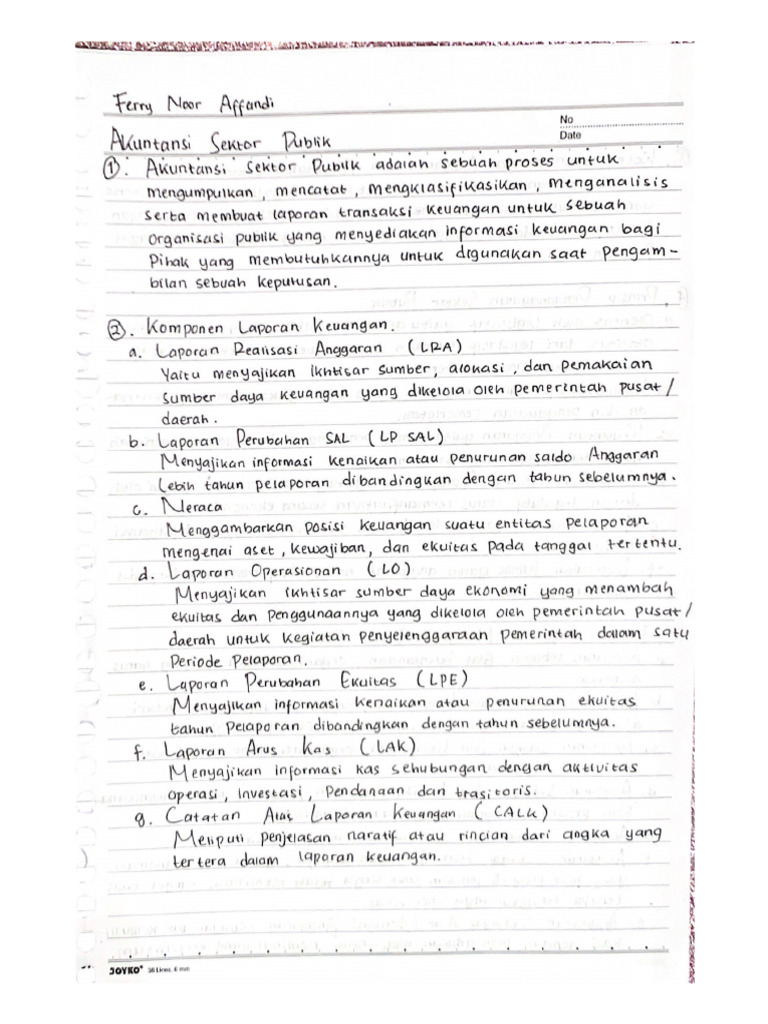 Ferry Noor Affandi
No
Date
Akuntansi Sektor Publik
1. Akuntansi Sektor Publik adalah sebuah proses untuk
mengumpulkan, mencatat, mengklasifikasikan, menganalisis
serta membuat laporan transaksi keuangan untuk sebuah
organisasi publik yang menyediakan informasi keuangan bagi
Pihak yang membutuhkannya untuk digunakan saat pengam-
bilan sebuah keputusan.
2. Komponen Laporan Keuangan.
a. Laporan Realisasi Anggaran (LRA)
Yaitu menyajikan Ikhtisar sumber, alokasi, dan pemakaian
sumber daya keuangan yang dikelola oleh pemerintah pusat/
daerah.
b. Laporan Perubahan SAL (LP SAL)
Menyajikan informasi kenaikan atau penurunan saldo Anggaran
Lebih tahun pelaporan dibandingkan dengan tahun sebelumnya.
c. Neraca
Menggambarkan posisi keuangan suatu entitas pelaporan
mengenai aset, kewajiban, dan ekuitas pada tanggal tertentu.
d. Laporan Operasionan (LO)
Menyajikan Ikhtisar sumber daya ekonomi yang menambah
ekuitas dan penggunaannya yang dikelola oleh pemerintah pusat/
daerah untuk kegiatan penyelenggaraan pemerintah dalam satu
Periode Pelaporan.
e. Laporan Perubahan Ekuitas (LPE)
Menyajikan informasi kenaikan atau penurunan ekuitas
tahun Pelaporan dibandingkan dengan tahun sebelumnya.
f. Laporan Arus Kas (LAK)
Menyajikan informasi kas sehubungan dengan aktivitas
operasi, Investasi, Pendanaan dan trasitoris.
g. Catatan Atas Laporan Keuangan (CALK)
Meliputi penjelasan naratif atau rincian dari angka yang
tertera dalam laporan keuangan.
JOYKO 36 Lines, 6 mm